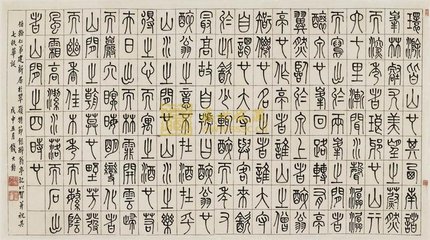 環滁皆山也其西南諸
峯林壑尤美望之蔚然
而深秀者琅琊也山行
六七里漸聞水聲潺潺
而瀉出於兩峯之間者
釀泉也峯回路轉有亭
翼然臨於泉上者醉翁
亭也作亭者誰山之僧
智仙也名之者誰太守
自謂也太守與客來飲
於此飲少輒醉而年又
最高故自號曰醉翁也
醉翁之意不在酒在乎
山水之間也山水之樂
得之心而寓之酒也若
夫日出而林霏開雲歸
而巖穴暝晦明變化者
山間之朝暮也野芳發
而幽香佳木秀而繁陰
風霜高潔水落而石出
者山間之四時也